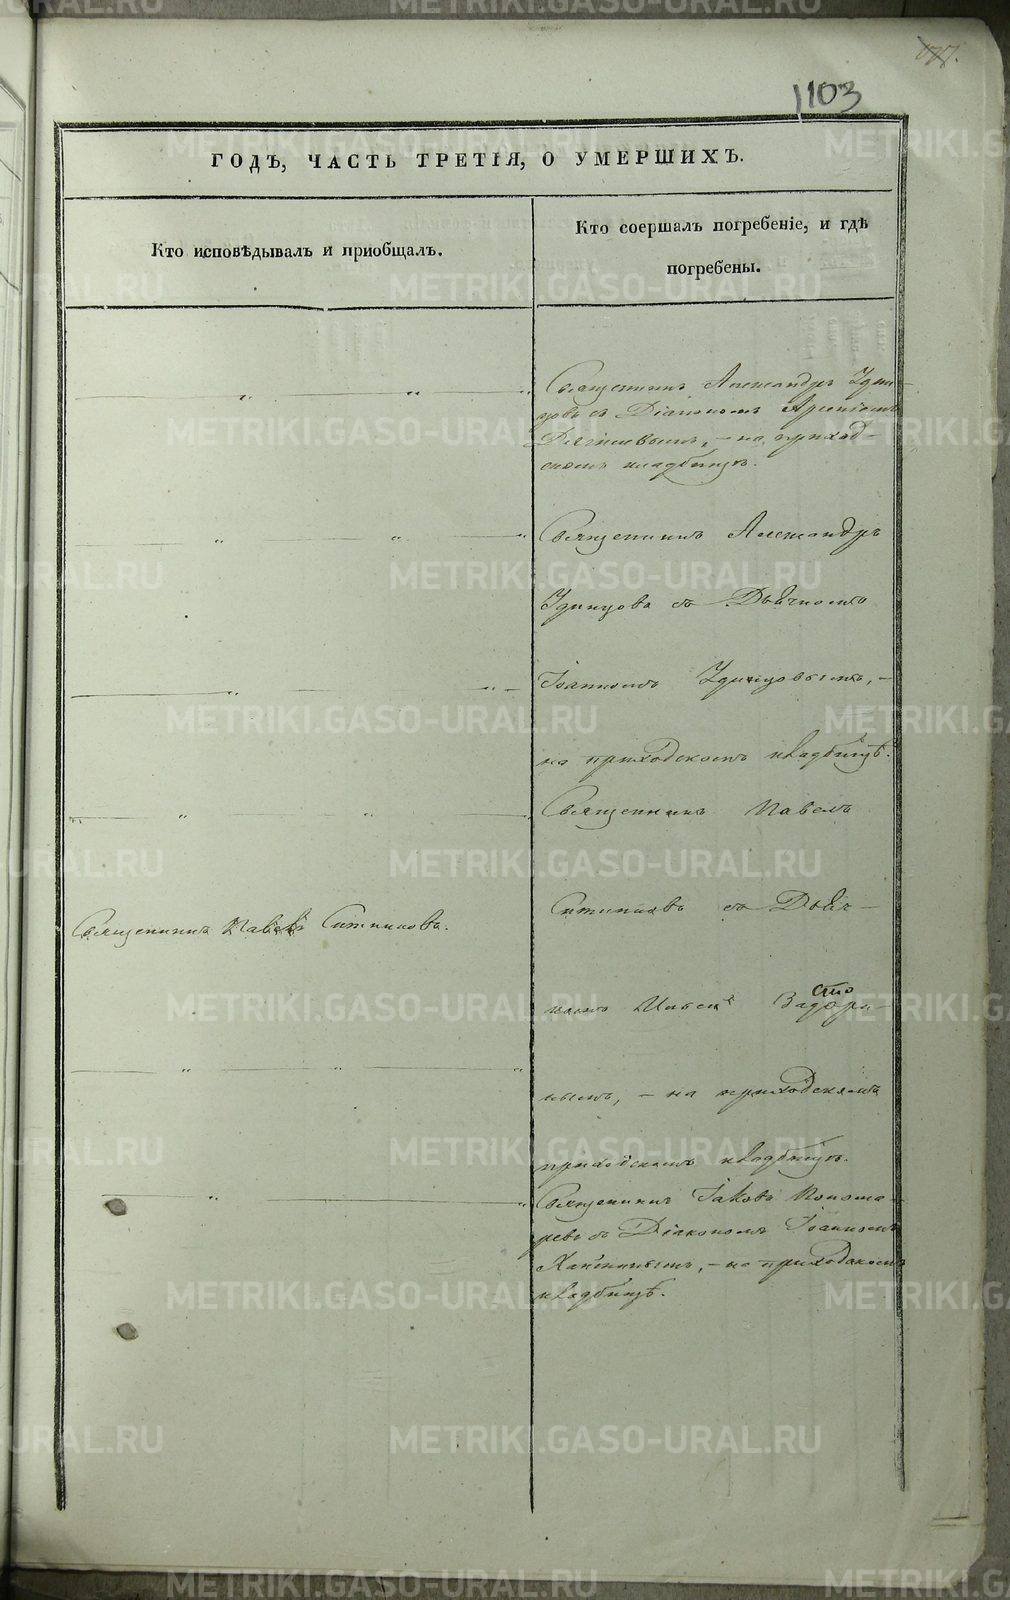 177.
1103
ГОДЪ, ЧАСТЬ ТРЕТІЯ, О УМЕРШИХЪ.
Кто исповѣдывалъ и приобщалъ.
Кто соершалъ погребеніе, и гдѣ
погребены.
Священникъ Александръ Удин-
цовъ съ Діакономъ Арсеніемъ
Дягилевымъ, – на приход-
скомъ кладбищѣ.
Священникъ Александръ
Удинцовъ съ Дьячкомъ
Іоанномъ Удинцовымъ, –
на приходскомъ кладбищѣ.
Священникъ Павелъ
Ситниковъ съ Дьяч-
Священникъ Павелъ Ситниковъ.
комъ
нымъ, – на приходскомъ
приходскомъ кладбищѣ.
Священникъ Іаковъ Понома-
ревъ съ Діакономъ Іоанномъ
– на приходскомъ
кладбищѣ.
METRIKI.GASO-URAL.RU